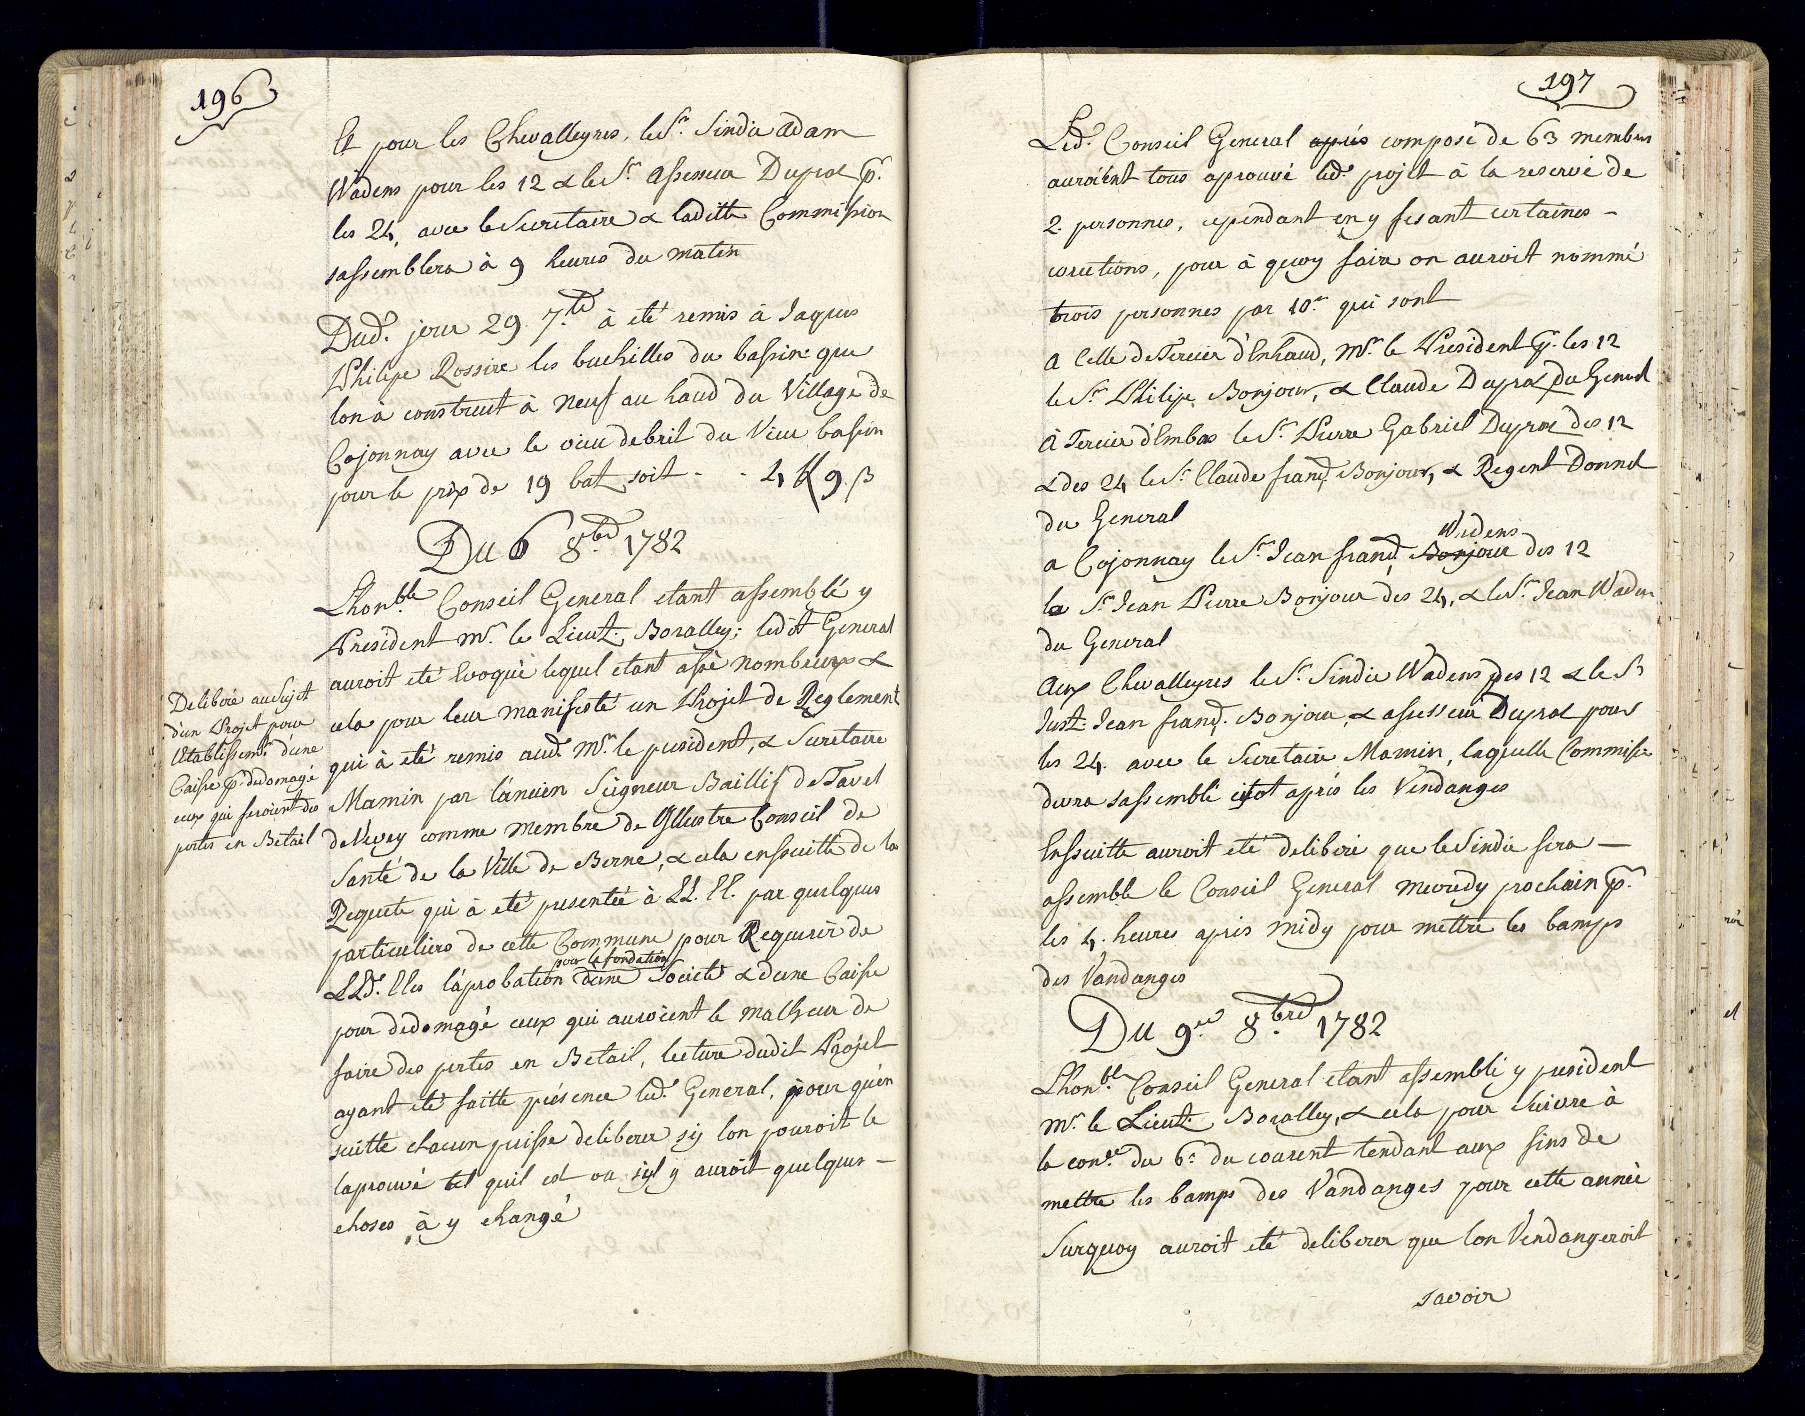 196
Et pour les Chevalleyres, le Sr. Sindic Adam
Wadens pour les 12 & le Sr. Assesseur Dupras p.
les 24, avec le Secretaire & laditte Commission
sassemblera à 9 heures du matin
Dud. jour 29 7.bre à eté remis à Jaques
Philipe Rossire les buchilles du bassin que
lon a construit à neuf au haud du Village de
Cojonnay avec le vieu debril du Vieu bassin
pour le prix de 19 bat. soit - - 4 K 9 β
Du 6 8.bre 1782
Lhon.ble Conseil General etant assemblé y
President Mr. le Lieut. Boralley; ledit General
auroit eté Evoqué lequel etant assé nombreux &
cela pour leur manifesté un Projet de Reglement
qui à eté remis aud. Mr. le president, & Secretaire
Mamin par láncien Seigneur Baillif de Tavel
de Vevey comme membre de Yllustre Conseil de
Santé de la Ville de Berne, & cela ensuitte de la
Requete qui à eté presentée à LL. EE. par quelques
particuliers de cette Commune pour Requerir de
LLd. EEes láprobation pour la fondation dune Societé & dune Caisse
pour dedomagé ceux qui auroient le malheur de
faire des pertes en Betail, lecture dudit Projet
ayant eté faitte présence led. General, pour qu'en
suitte chacun puisse deliberer sy lon pouroit le
laprouvé tel quil est ou syl y auroit quelques -
choses à y changé
Deliberé au Sujet
d'un Projet pour
létablissemt. d'une
Caisse p. dedomagé
ceux qui feroient des
pertes en Betail
197
Led. Conseil General après composé de 63 membres
auroient tous aprouvé led. projet à la reserve de
2. personnes, cependant en y fesant certaines -
corections, pour à quoy faire on auroit nommé
trois personnes par 10e. qui sont
a Celle de Tercier d'Enhaud, Mr. le President p. les 12
le Sr. Philipe Bonjour, & Claude Dupras du General
à Tercier d'Embas le Sr. Pierre Gabriel Dupras des 12
& des 24 le Sr. Claude franç. Bonjour, & Regent Donnet
du General
a Cojonnay le Sr. Jean franç. Bonjour Wadens des 12
le Sr. Jean Pierre Bonjour des 24, & le Sr. Jean Wadens
du General
Aux Chevalleyres le Sr. Sindic Wadens des 12 & le Sr.
Just. Jean franç. Bonjour, & assesseur Dupras pour
les 24. avec le Secretaire Mamin, laquelle Commission
devra sassemblé sitot après les Vendanges
Enssuitte auroit eté deliberé que le Sindic fera —
assemblé le Conseil General mecredy prochain p.
les 4. heures après midy pour mettre les bamps
des Vandanges
Du 9.me 8.bre 1782
Lhon.ble Conseil General etant assemblé y president
Mr. le Lieut. Boralley, & cela pour Suivre à
la con.ce du 6e. du courent tendant aux fins de
mettre les bamps des Vandanges pour cette année
Surquoy auroit eté deliberer que lon Vendangeroit
savoir